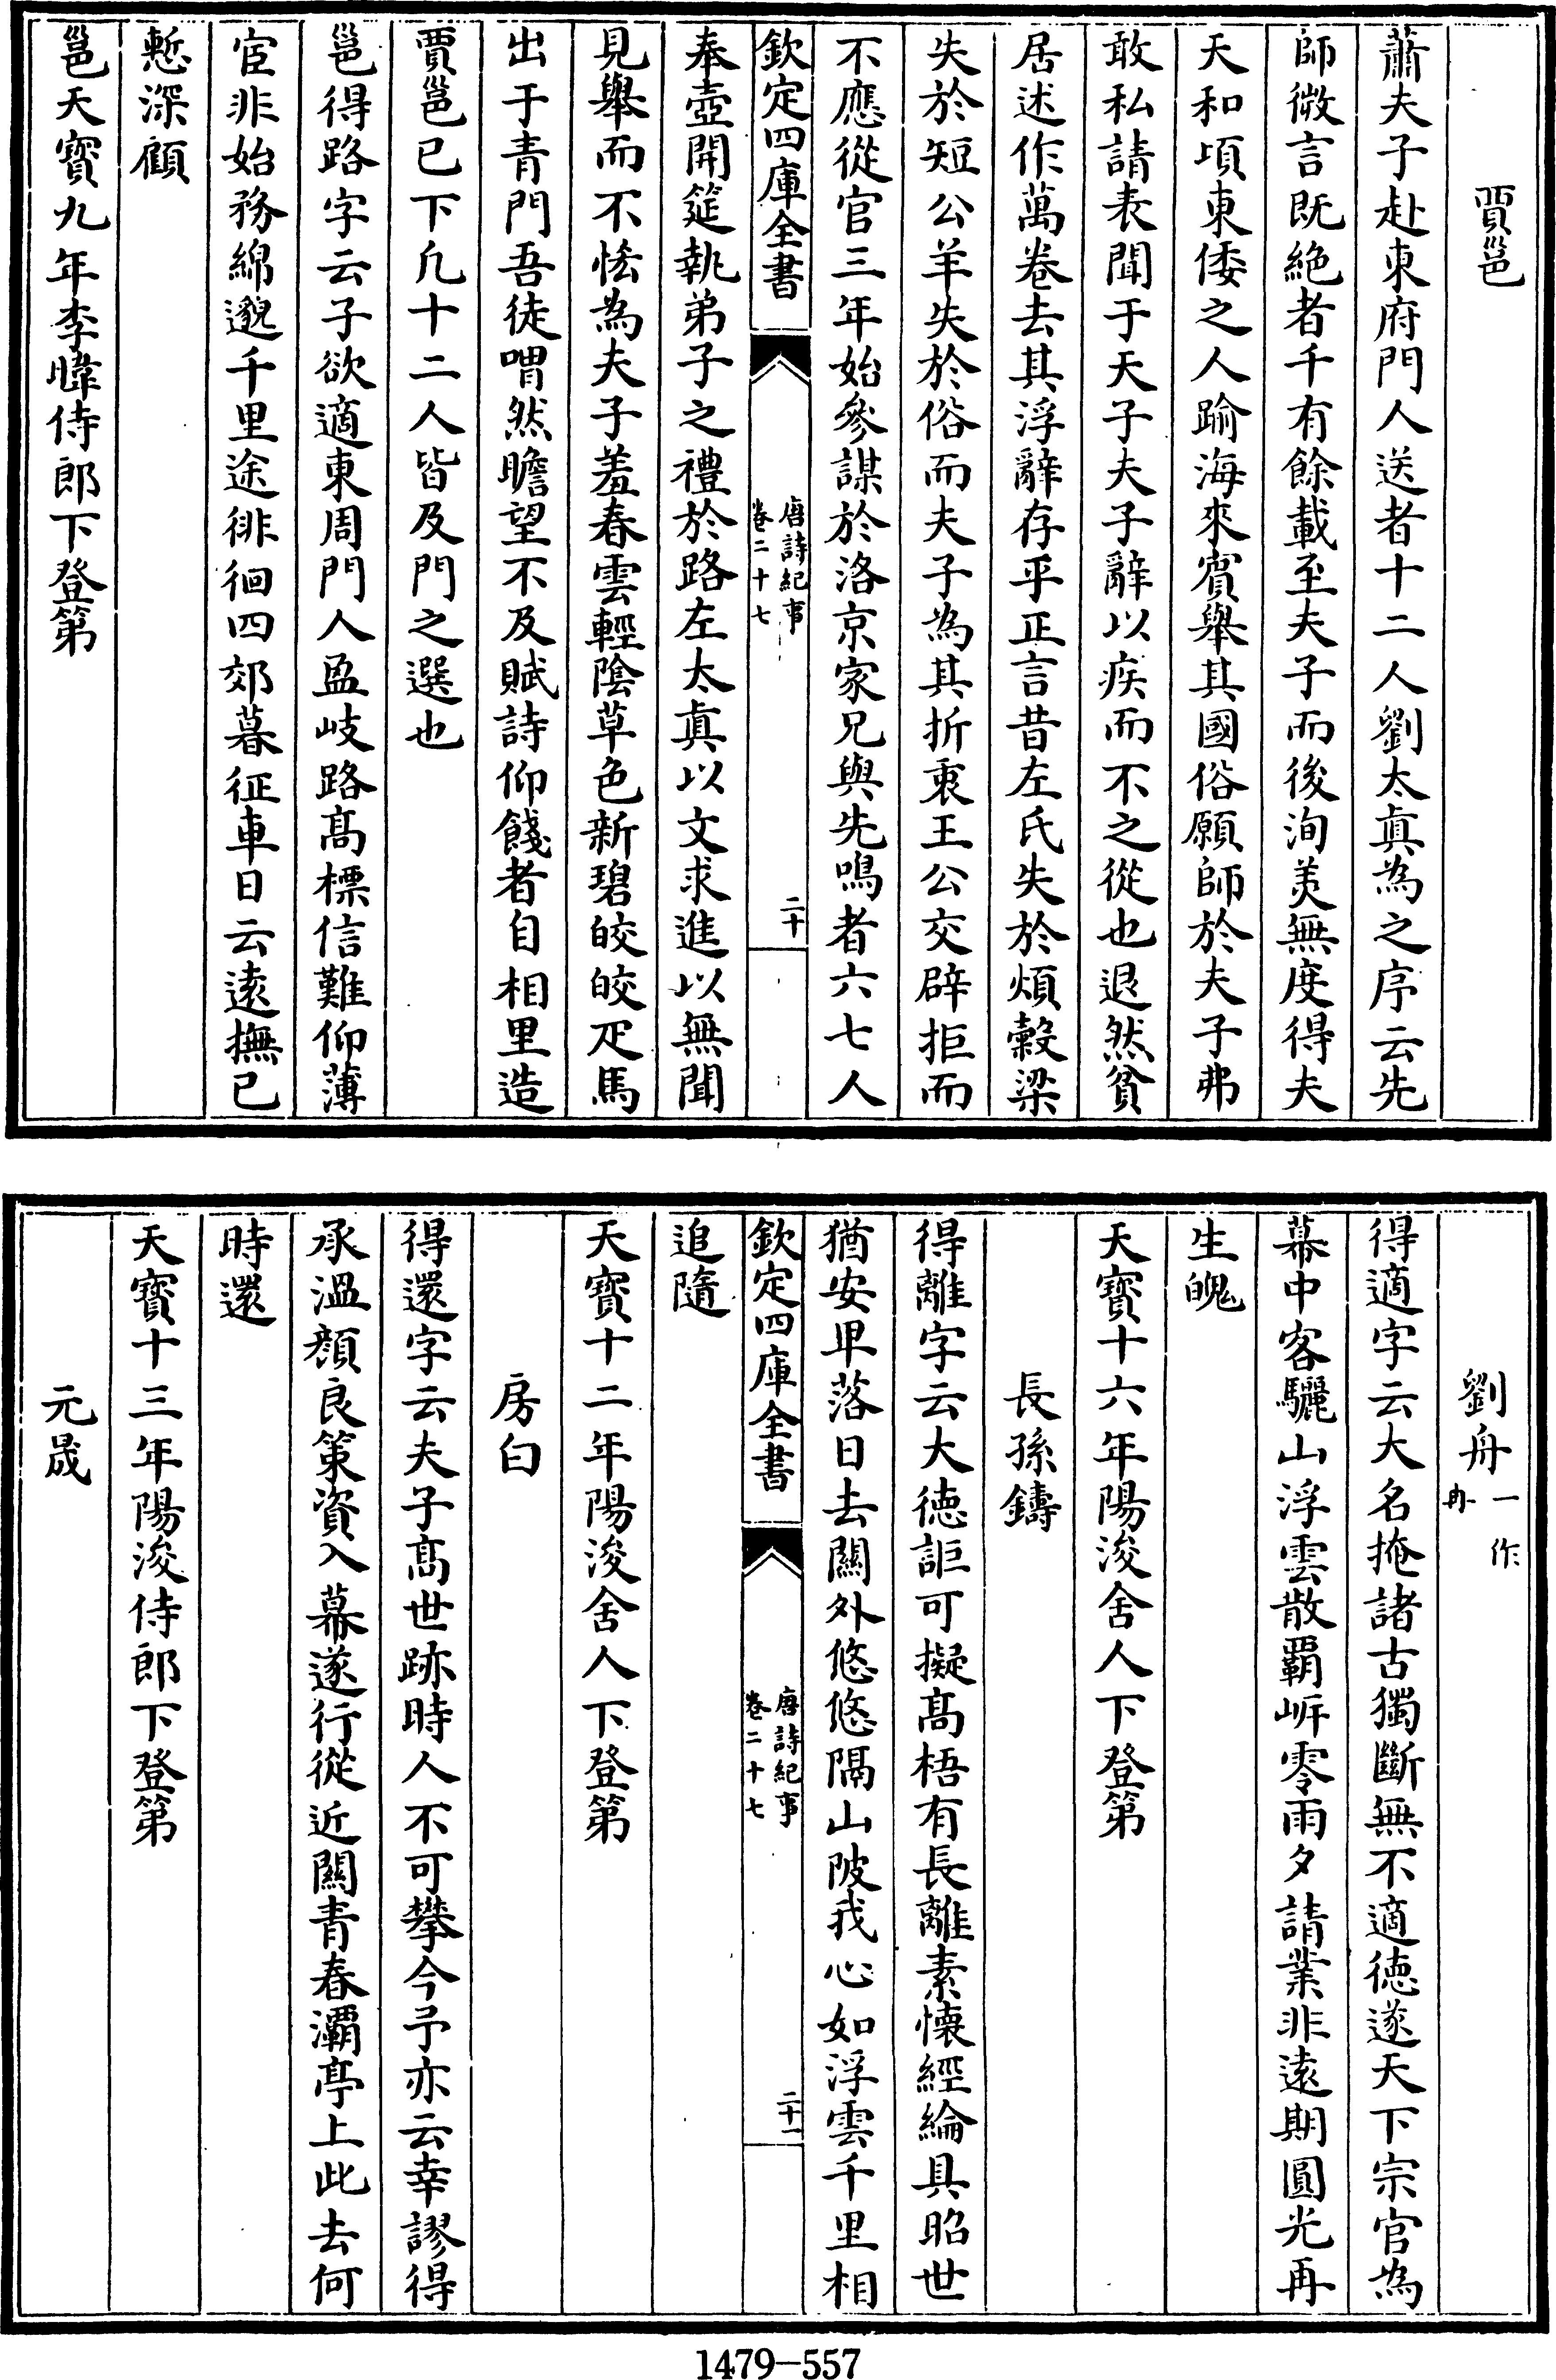 賈邕
蕭夫子赴東府門人送者十二人劉太真為之序云先
師微言既絶者千有餘載至夫子而後洵美無度得夫
天和頃東倭之人踰海來賓舉其國俗願師於夫子弗
敢私請表聞于天子夫子辭以疾而不之從也退然貧
居述作萬卷去其浮辭存乎正言昔左氏失於煩穀梁
失於短公羊失於俗而夫子為其折衷王公交辟拒而
不應從官三年始參謀於洛京家兄與先鳴者六七人
欽定四庫全書
唐詩紀事
卷二十七
二十
奉壺開筵執弟子之禮於路左太真以文求進以無聞
見舉而不恡為夫子羞春雲輕陰草色新碧皎皎疋馬
出于青門吾徒喟然瞻望不及賦詩仰餞者自相里造
賈邕已下凢十二人皆及門之選也
邕得路字云子欲適東周門人盈岐路髙標信難仰薄
宦非始務綿邈千里途徘徊四郊暮征車日云逺撫已
慙深顧
邕天寳九年李暐侍郎下登第
劉舟
一作
冉
得適字云大名掩諸古獨斷無不適徳遂天下宗官為
幕中客驪山浮雲散覇岍零雨夕請業非逺期圓光再
生魄
天寳十六年陽浚舍人下登第
長孫鑄
得離字云大徳詎可擬髙梧有長離素懐經綸具昭世
猶安卑落日去關外悠悠隔山陂我心如浮雲千里相
欽定四庫全書
唐詩紀事
卷二十七
二十一
追隨
天寳十二年陽浚舍人下登第
房白
得還字云夫子髙世跡時人不可攀今予亦云幸謬得
承溫顔良策資入幕遂行從近關青春灞亭上此去何
時還
天寳十三年陽浚侍郎下登第
元晟
1479-557